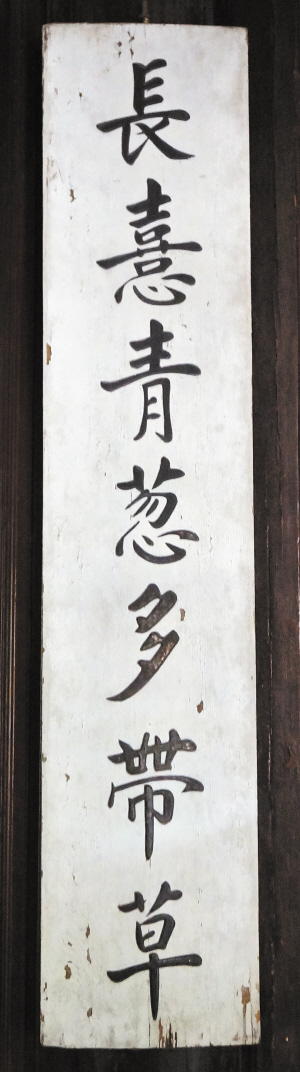 長憙青葱多帶草